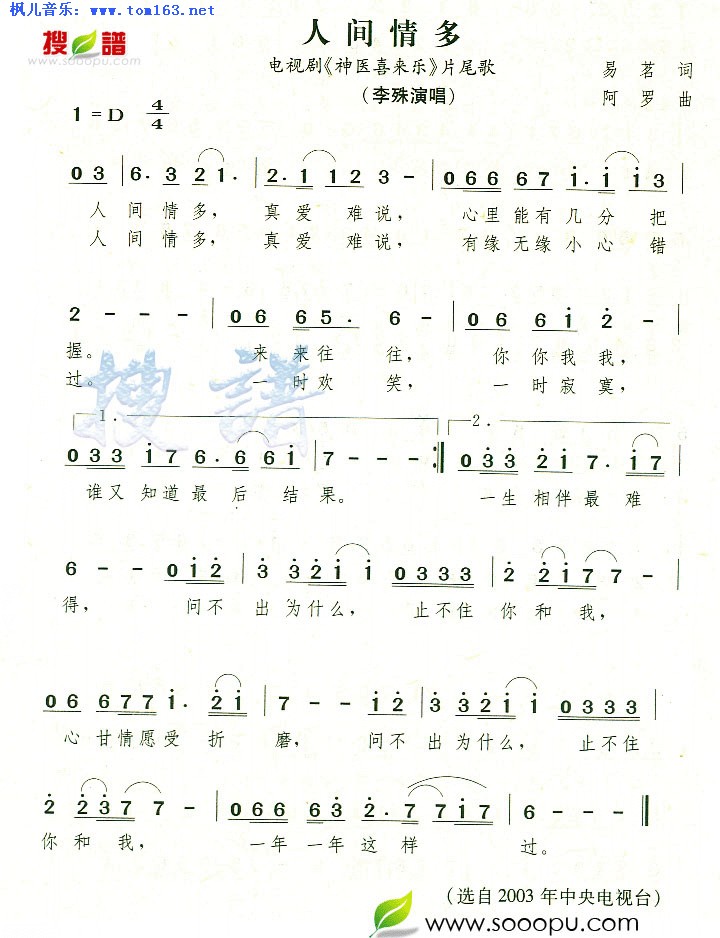 枫儿音乐: www.tom163.net
搜谱
www.sooopu.com
人间情多
电视剧《神医喜来乐》片尾歌
(李殊演唱)
易茗 词
阿罗 曲
1 = D 4/4
0 3 | 6. 3 2 1. | 2. 1 1 2 3 - | 0 6 6 6 7 1. 1 1 3 |
人间情多, 真爱难说, 心里能有几分把
人间情多, 真爱难说, 有缘无缘小心错
2 - - - | 0 6 6 5. 6 - | 0 6 6 1 2 - |
握。 来来往往, 你你我我,
过。 一时欢笑, 一时寂寞,
1. 2.
0 3 3 1 7 6. 6 6 1 | 7 - - - :| 0 3 3 2 1 7. 1 7 |
谁又知道最后结果。 一生相伴最难
6 - - 0 1 2 | 3 3 2 1 1 0 3 3 3 | 2 2 1 7 7 - |
得, 问不出为什么, 止不住你和我,
0 6 6 7 7 1. 2 1 | 7 - - 1 2 | 3 3 2 1 1 0 3 3 3 |
心甘情愿受折磨, 问不出为什么, 止不住
2 2 3 7 7 - | 0 6 6 6 3 2. 7 7 1 7 | 6 - - - ‖
你和我, 一年一年这样过。
(选自2003年中央电视台)
www.sooopu.com
搜谱